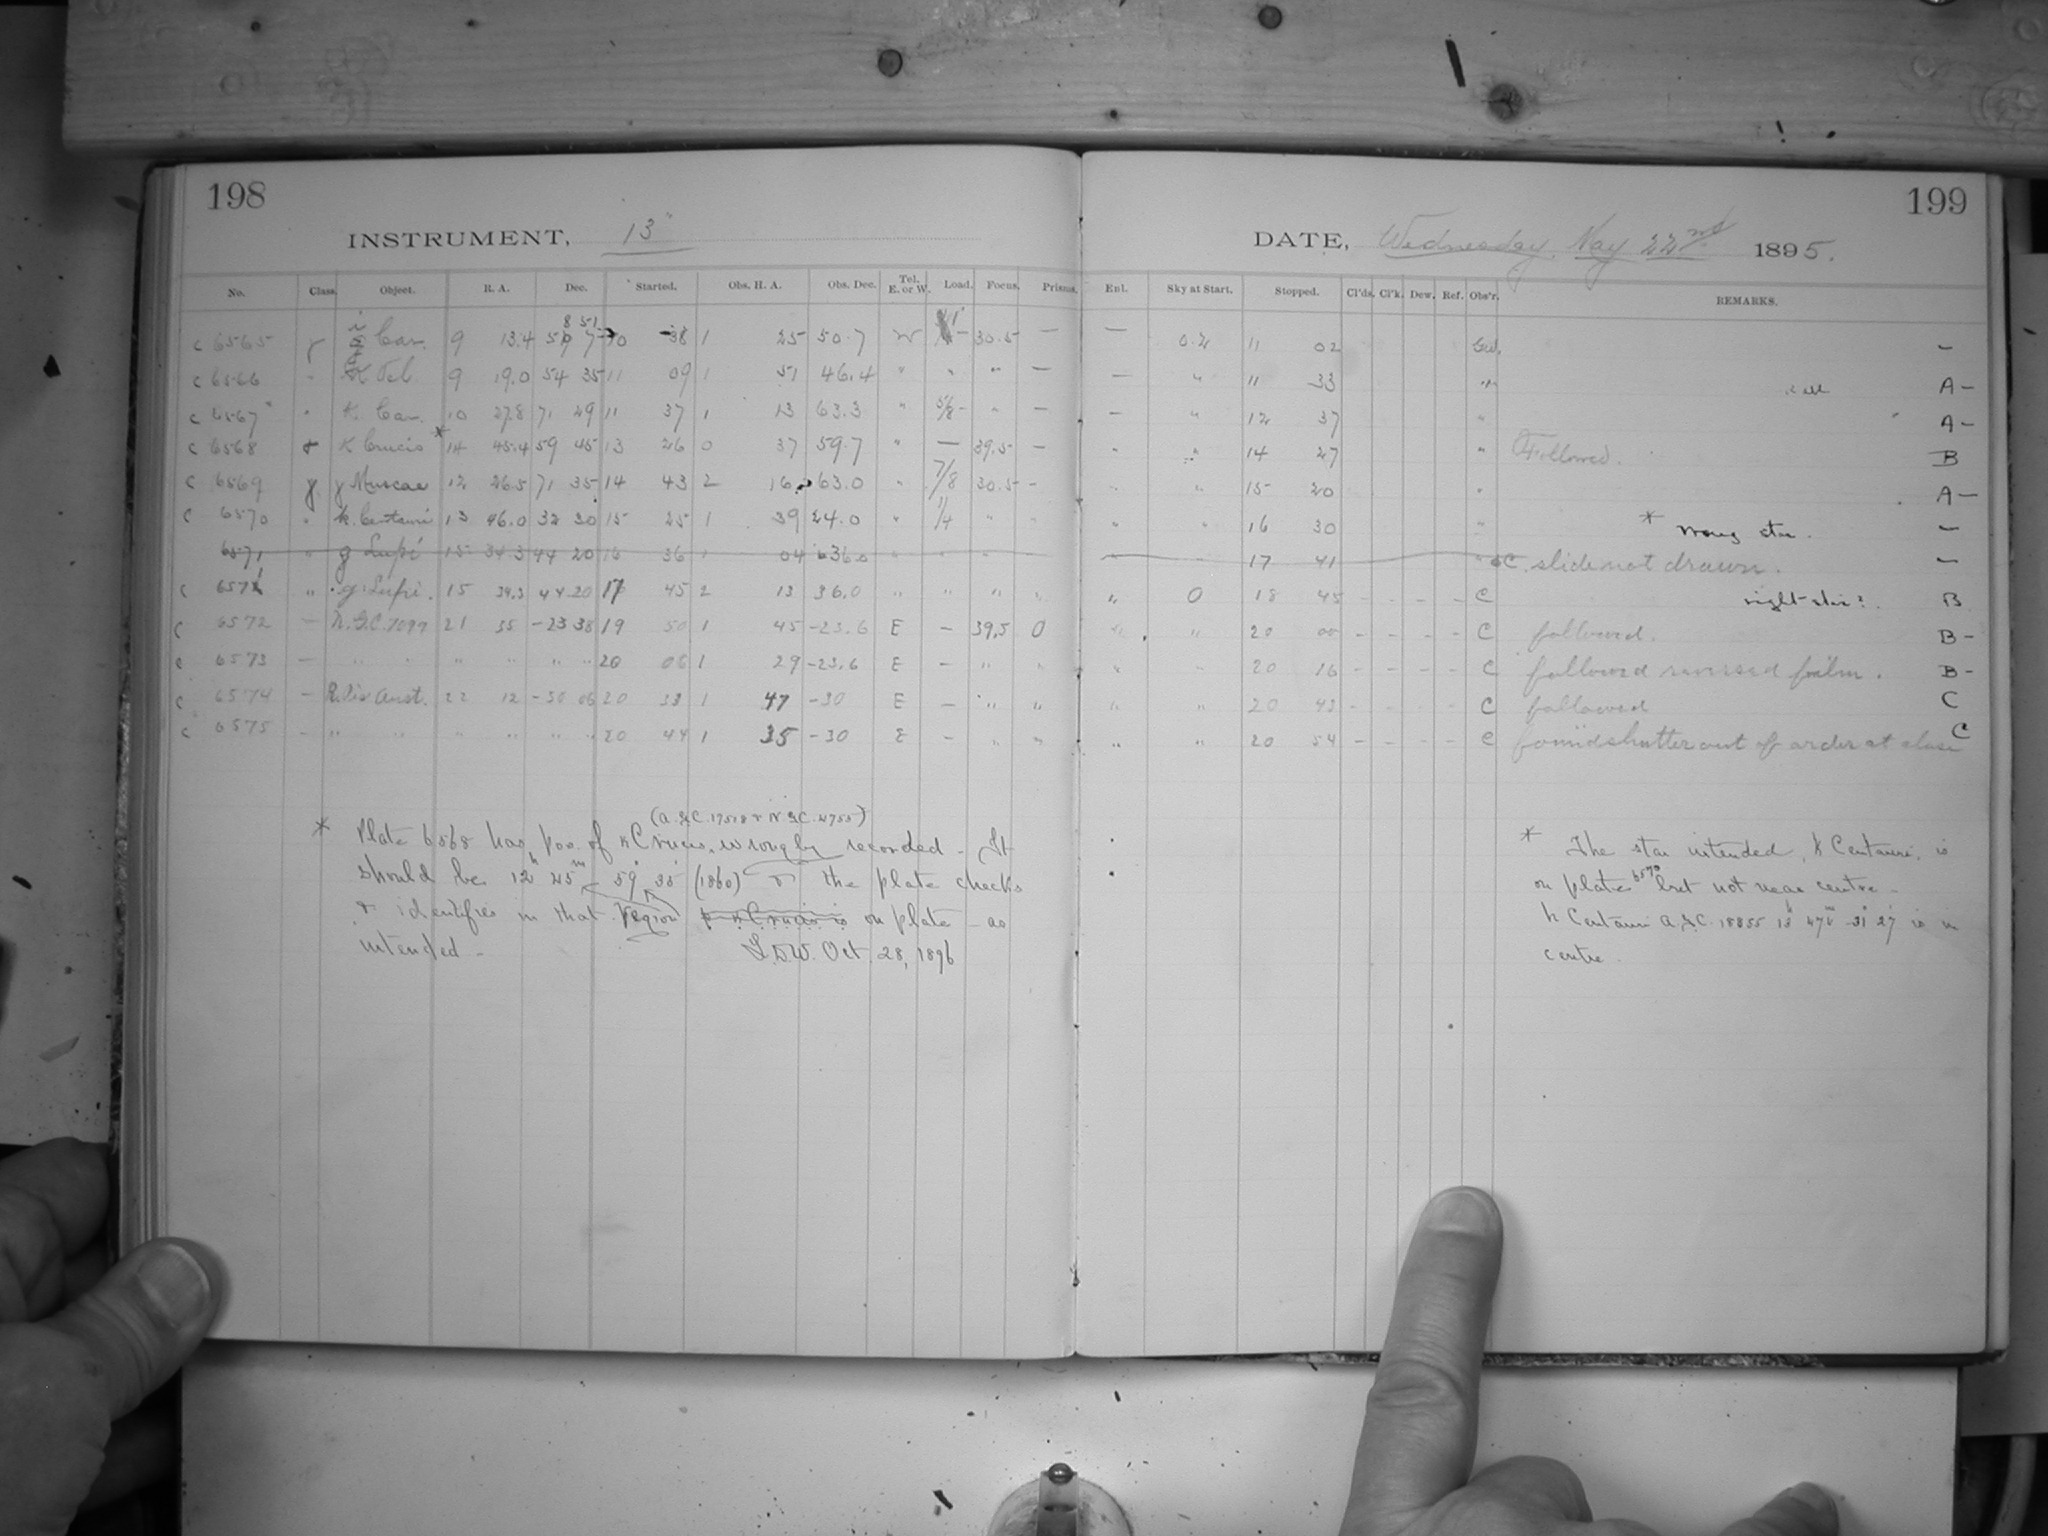 198
INSTRUMENT, 13"
No. Class. Object. R. A. Dec. Started. Obs. H. A. Obs. Dec. Tel. E. or W. Load. Focus. Prisms.
c 6565 Car. 9 13.4 38 1 25 50.7 W 30.5 —
c 6566 " Vel. 9 19.0 54 35 11 09 1 51 46.4 " " " —
c 6567 " K. Car. 10 27.8 71 29 11 37 1 13 63.3 " 5/8 " —
c 6568 K Crucis * 14 45.4 59 45 13 26 0 37 59.7 " — 39.5 —
c 6569 γ γ Muscae 12 26.5 71 35 14 43 2 16 63.0 " 7/8 30.5 -
c 6570 " k. Centauri 13 46.0 32 30 15 25 1 39 24.0 " 1/4 " "
6571 " g Lupi 15 34.3 44 20 16 36 1 04 36.0 " " "
c 6571 " g Lupi. 15 34.3 44 20 17 45 2 13 36.0 " " " "
c 6572 — N.G.C. 7099 21 35 -23 38 19 50 1 45 -23.6 E — 39.5 0
c 6573 — " " " " " " 20 06 1 29 -23.6 E — " "
c 6574 — R. Pis Aust. 22 12 -30 06 20 33 1 47 -30 E — " "
c 6575 - " " " " " " 20 44 1 35 -30 E — " "
(A.G.C. 17518 & N.G.C. 4755)
* Plate 6568 has pos. of κ Crucis, wrongly recorded - It
should be 12h 45m - 59° 35' (1860) & the plate checks
& identifies in that region κ Crucis is on plate - as
intended -
L.D.W. Oct. 28, 1896
199
DATE, Wednesday, May 22nd 1895.
Enl. Sky at Start. Stopped. Cl'ds. Cl'k. Dew. Ref. Obs'r. REMARKS.
— 0.2 11 02 —
— " 11 33 " A —
— " 12 37 " A —
" " 14 27 " Followed. B
" " 15 20 " A —
" " 16 30 " * wrong star. —
" 17 41 C. slide not drawn. —
" 0 18 45 - - - - C right star?. B
" " 20 00 - - - - C followed. B -
" " 20 16 - - - - C followed reversed film. B -
" " 20 43 - - - - C followed C
" " 20 54 - - - - C found shutter out of order at close C
* The star intended, k Centauri, is
on plate 6570 but not near centre -
h Centauri A.G.C. 18855 13h 47m -31° 27' is in
centre.